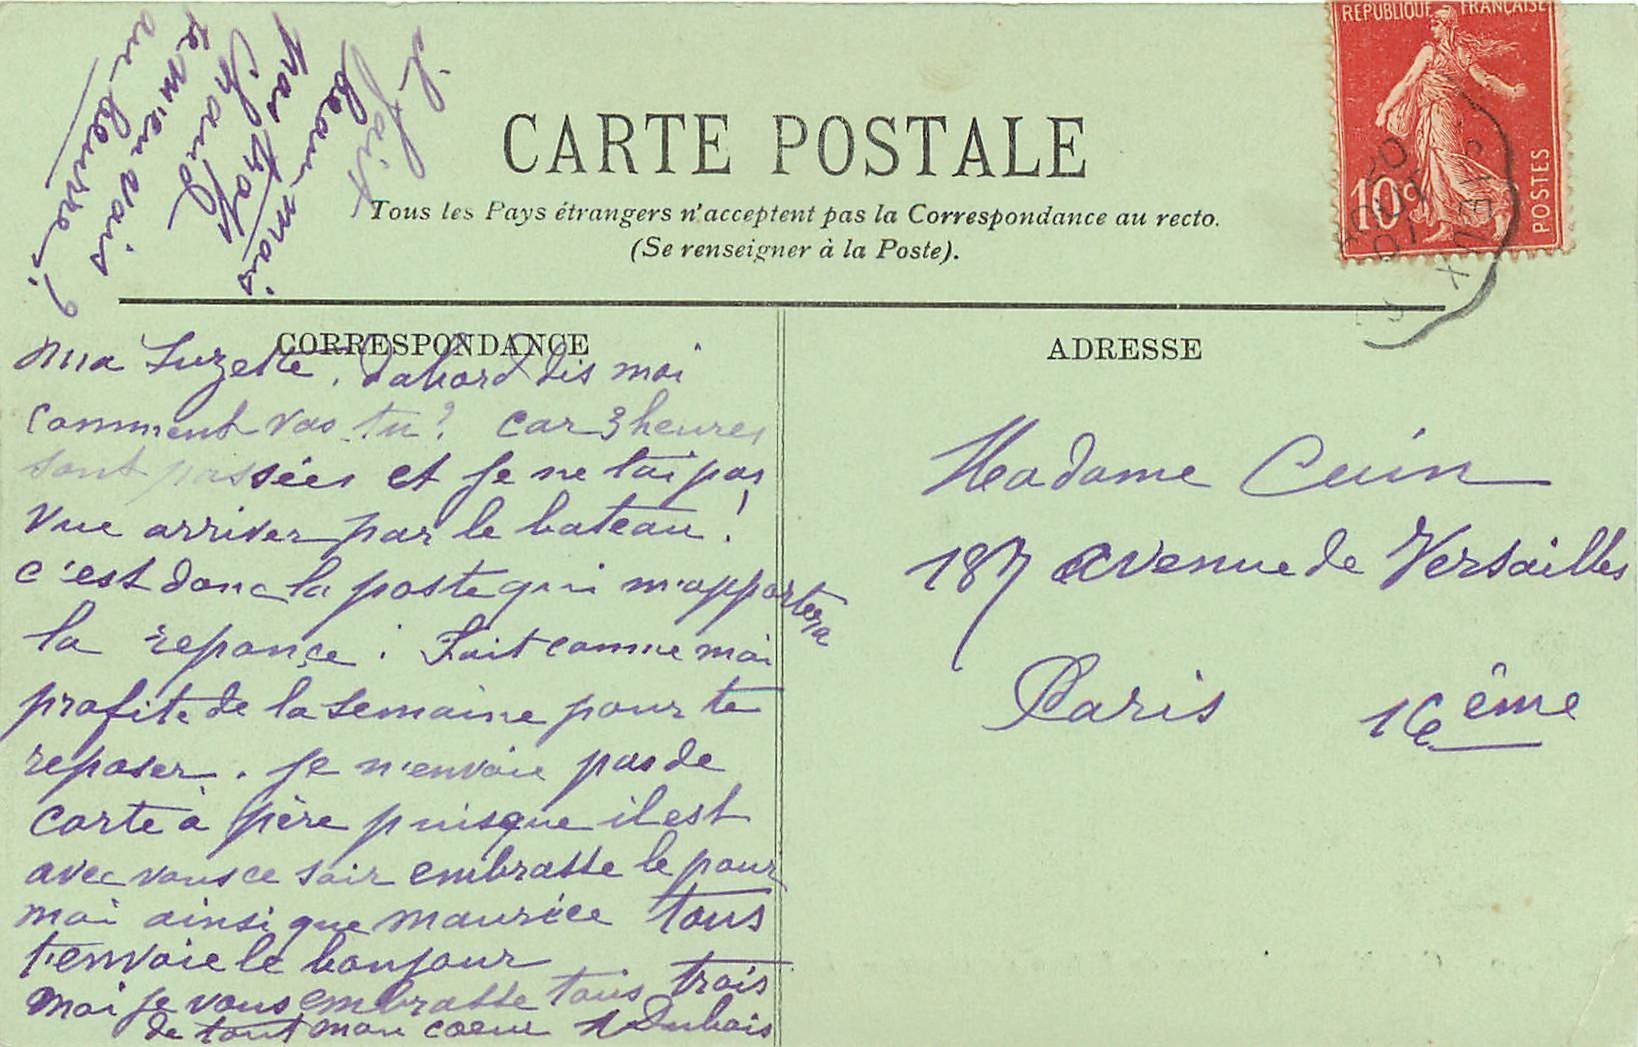 il fait
beau mais
pas trop
chaud
je m'en vais
au beurre ?
REPUBLIQUE FRANÇAISE
10c
POSTES
CARTE POSTALE
Tous les Pays étrangers n'acceptent pas la Correspondance au recto.
(Se renseigner à la Poste).
CORRESPONDANCE
ma Suzette, dabord dis moi
comment vas tu ? car 3 heures
sont passées et je ne tai pas
vue arriver par le bateau !
c'est donc la poste qui m'apportera
la reponçe. Fait comme moi
profite de la semaine pour te
reposer. je n'envoie pas de
carte à père puisque il est
avec vous ce soir embrasse le pour
moi ainsi que maurice tous
t'envoie le bonjour
moi je vous embrasse tous trois
de tout mon coeur Dubois
ADRESSE
Madame Cuin
187 avenue de Versailles
Paris 16ème